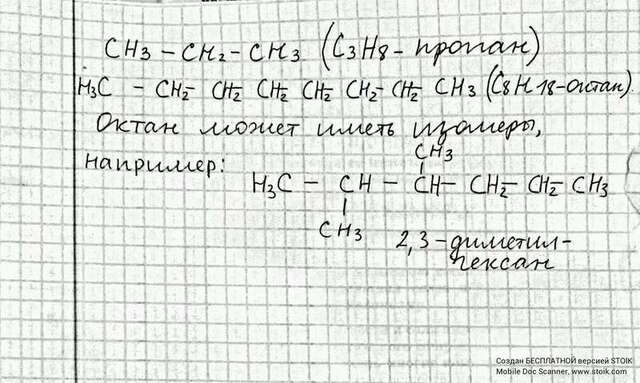 CH3 – CH2 – CH3 (C3H8 – пропан)
H3C – CH2 – CH2 – CH2 – CH2 – CH2 – CH2 – CH3 (C8H18 – октан).
Октан может иметь изомеры,
например:
CH3
H3C – CH – CH – CH2 – CH2 – CH3
CH3
2,3 – диметил-
гексан
Создан БЕСПЛАТНОЙ версией STOIK
Mobile Doc Scanner, www.stoik.com